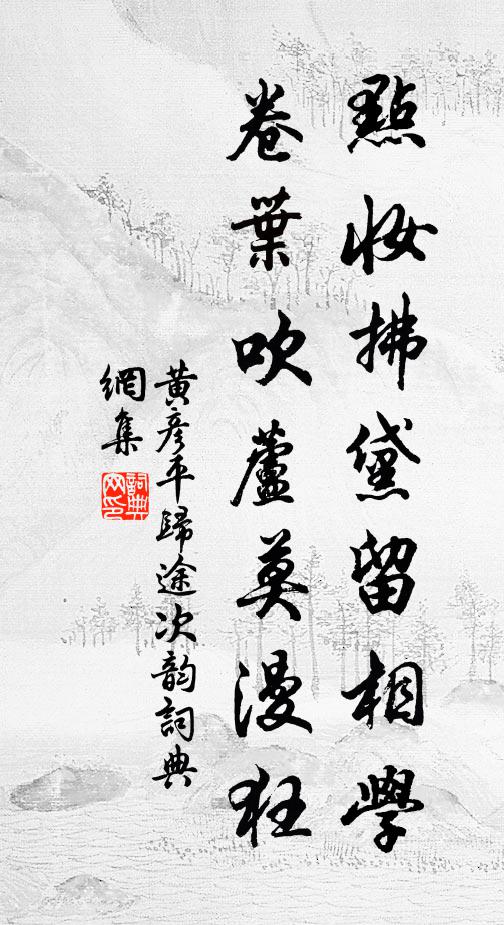 點妝拂黛留相學
卷葉吹蘆莫漫狂
黃彥平歸途次韵詞典
網集
詞典
网印